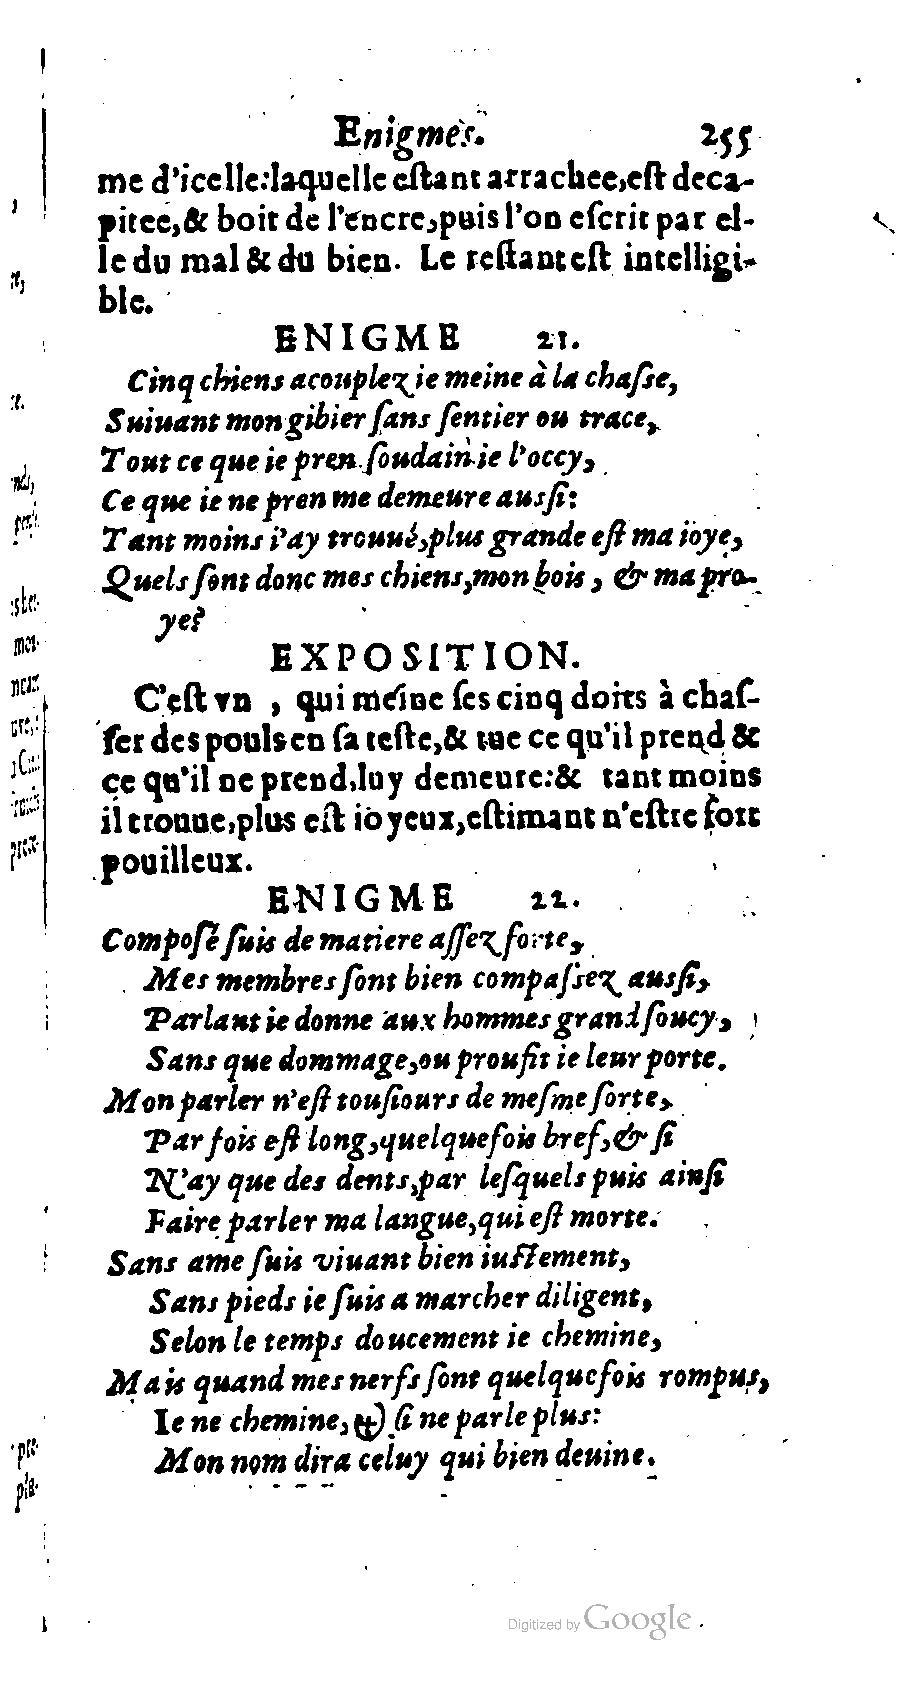 Enigmes. 255
me d'icelle:laquelle eſtant arrachee,eſt deca-
pitee,& boit de l'encre,puis l'on eſcrit par el-
le du mal & du bien. Le reſtant eſt intelligi-
ble.
ENIGME 21.
Cinq chiens acouplez ie meine à la chaſſe,
Suiuant mon gibier ſans ſentier ou trace,
Tout ce que ie pren ſoudain ie l'occy,
Ce que ie ne pren me demeure auſſi:
Tant moins i'ay trouué,plus grande eſt ma ioye,
Quels ſont donc mes chiens,mon bois, & ma pro-
ye?
EXPOSITION.
C'eſt vn , qui meine ſes cinq doits à chaſ-
ſer des pouls en ſa teſte,& tue ce qu'il prend &
ce qu'il ne prend,luy demeure:& tant moins
il trouue,plus eſt ioyeux,eſtimant n'eſtre fort
pouilleux.
ENIGME 22.
Compoſé ſuis de matiere aſſez forte,
Mes membres ſont bien compaſſez auſſi,
Parlant ie donne aux hommes grand ſoucy,
Sans que dommage,ou proufit ie leur porte.
Mon parler n'eſt touſiours de meſme ſorte,
Par fois eſt long,quelquefois bref,& ſi
N'ay que des dents,par leſquels puis ainſi
Faire parler ma langue,qui eſt morte.
Sans ame ſuis viuant bien iuſtement,
Sans pieds ie ſuis a marcher diligent,
Selon le temps doucement ie chemine,
Mais quand mes nerfs ſont quelquefois rompus,
Ie ne chemine,& ſi ne parle plus:
Mon nom dira celuy qui bien deuine.
Digitized by Google